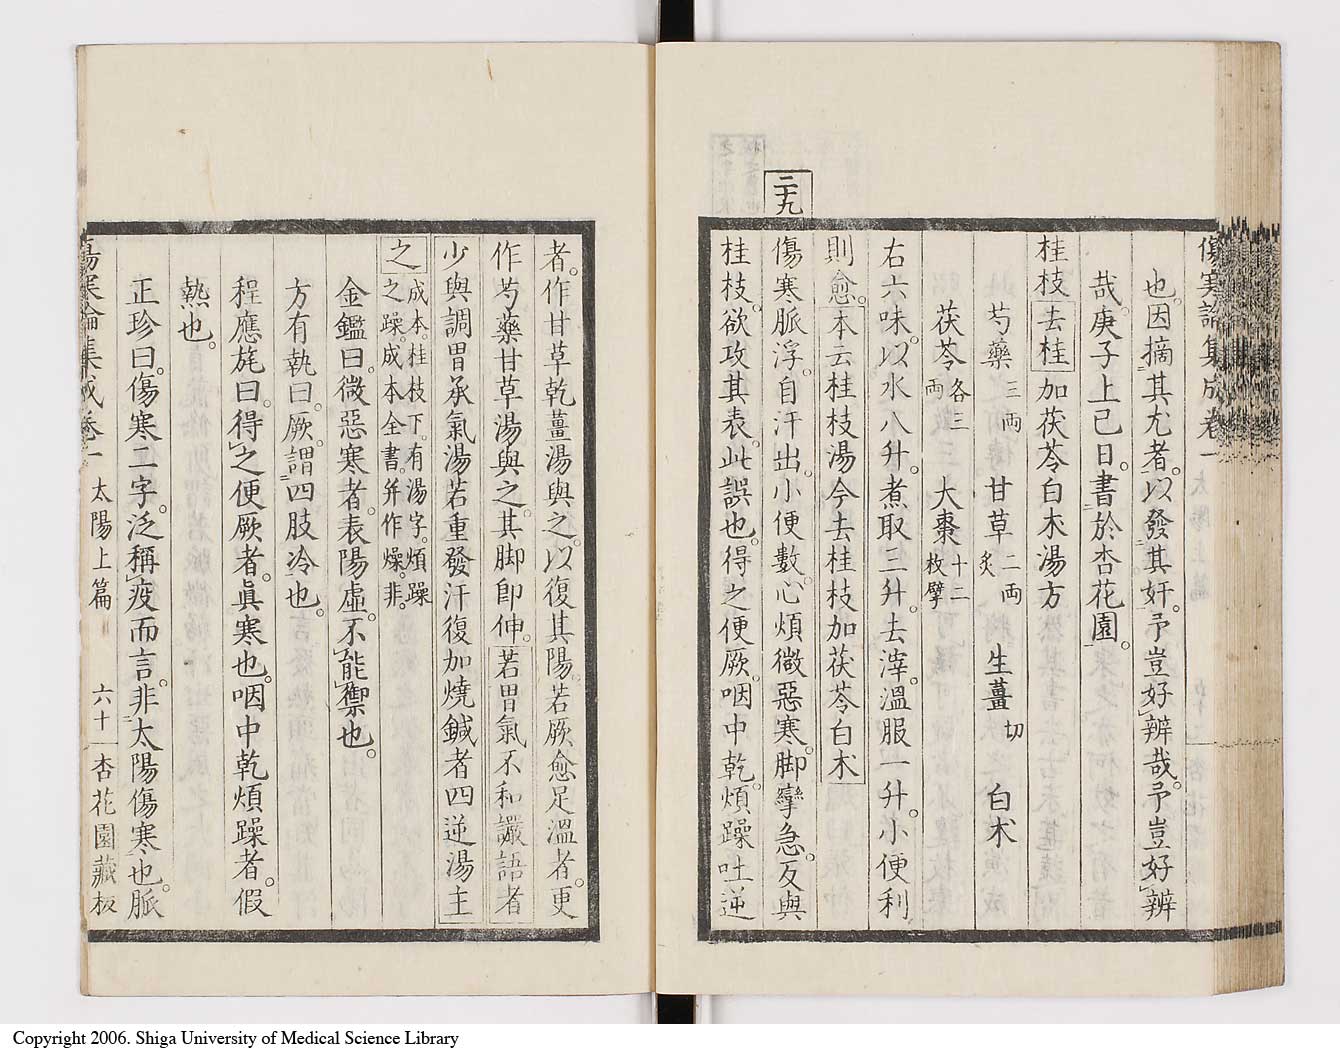 二十九
傷寒論集成卷一
也。因摘其尤者。以發其奸。予豈好辨哉。予豈好辨
哉。庚子上巳日。書於杏花園。
桂枝去桂加茯苓白朮湯方
芍藥三兩 甘草二兩炙 生薑切 白朮
茯苓各三兩 大棗十二枚擘
右六味。以水八升。煮取三升。去滓。溫服一升。小便利
則愈。本云桂枝湯今去桂枝加茯苓白朮
傷寒脈浮。自汗出。小便數。心煩微惡寒。脚攣急。反與
桂枝。欲攻其表。此誤也。得之便厥。咽中乾。煩躁吐逆
者。作甘草乾薑湯與之。以復其陽。若厥愈足溫者。更
作芍藥甘草湯與之。其脚卽伸。若胃氣不和讝語者
少與調胃承氣湯若重發汗復加燒鍼者四逆湯主
之 成本。桂枝下。有湯字。煩躁之躁。成本全書。并作燥。非。
金鑑曰。微惡寒者。表陽虛。不能禦也。
方有執曰。厥。謂四肢冷也。
程應旄曰。得之便厥者。眞寒也。咽中乾煩躁者。假
熱也。
正珍曰。傷寒二字。泛稱疫而言。非太陽傷寒也。脈
傷寒論集成卷一 太陽上篇 六十一 杏花園藏板